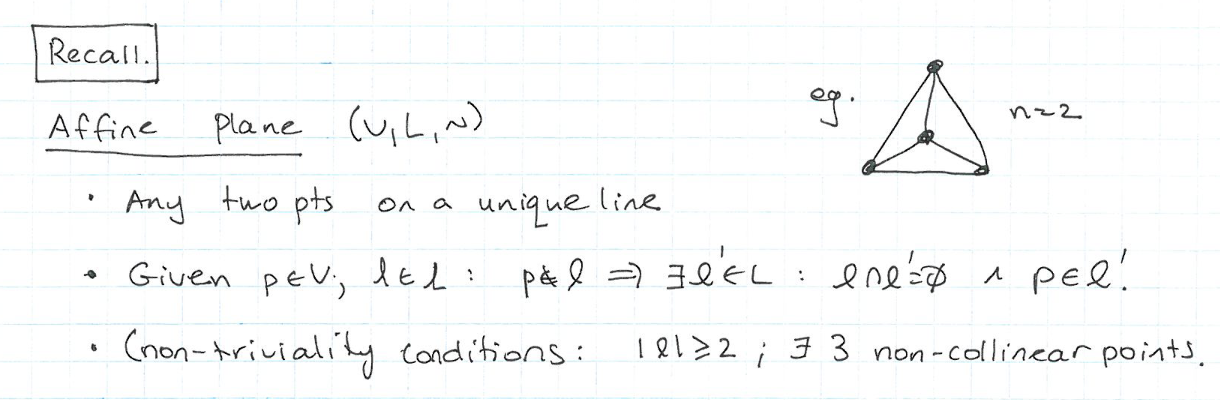 Recall.
eg. n=2
Affine Plane (V, L, ~)
· Any two pts on a unique line
• Given p∈V, l∈L : p∉l ⇒ ∃l'∈L : l∩l'=∅ ∧ p∈l'.
· (non-triviality conditions: |l|≥2 ; ∃ 3 non-collinear points.